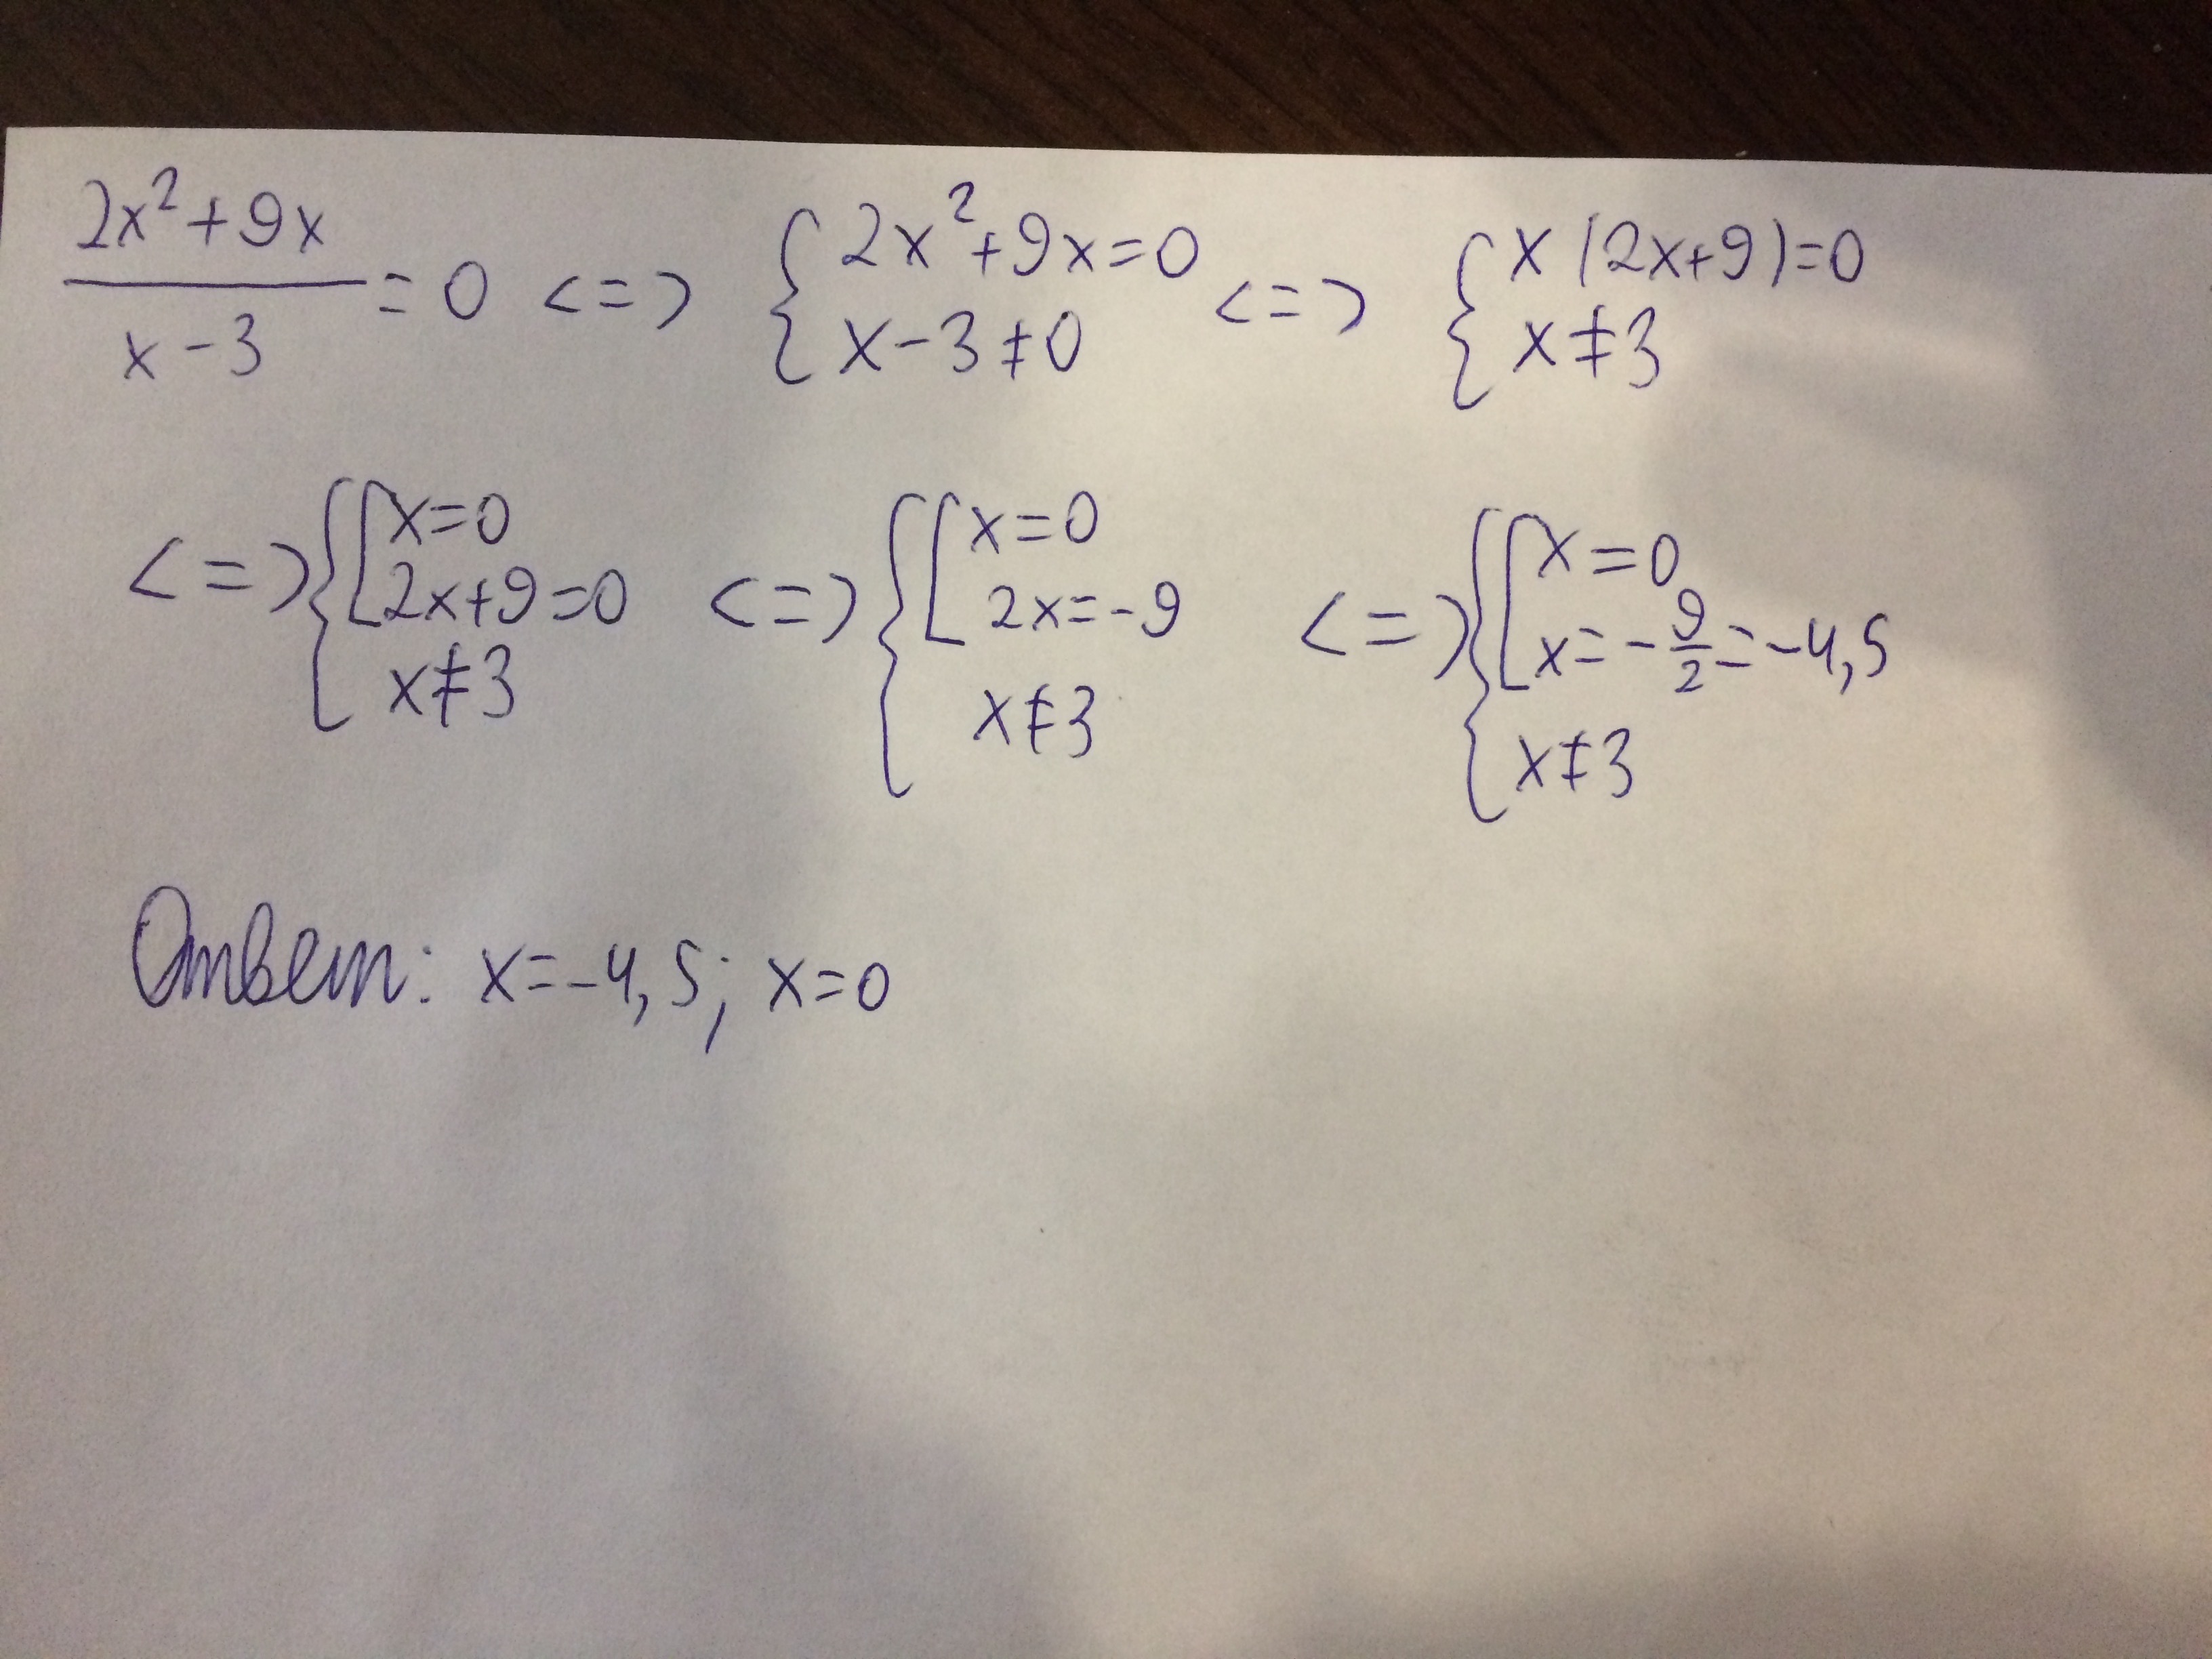 (2x²+9x)/(x-3) = 0 <=> { 2x²+9x=0; x-3≠0 <=> { x(2x+9)=0; x≠3
<=> { [ x=0; 2x+9=0; x≠3 <=> { [ x=0; 2x=-9; x≠3 <=> { [ x=0; x=-9/2=-4,5; x≠3
Ответ: x=-4,5; x=0